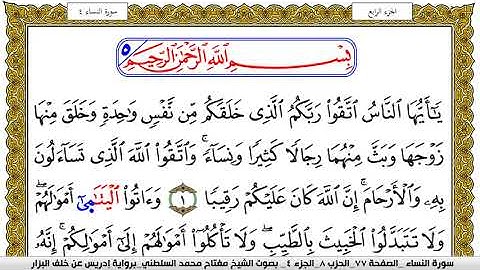 الجزء الرابع
سورة النساء ٤
بِسْمِ اللَّهِ الرَّحْمَٰنِ الرَّحِيمِ ٥
يَٰٓأَيُّهَا النَّاسُ اتَّقُوا رَبَّكُمُ الَّذِي خَلَقَكُم مِّن نَّفْسٍ وَٰحِدَةٍ وَخَلَقَ مِنْهَا
زَوْجَهَا وَبَثَّ مِنْهُمَا رِجَالًا كَثِيرًا وَنِسَآءً ۚ وَاتَّقُوا اللَّهَ الَّذِي تَسَآءَلُونَ
بِهِۦ وَالْأَرْحَامَ ۚ إِنَّ اللَّهَ كَانَ عَلَيْكُمْ رَقِيبًا ١ وَءَاتُوا الْيَتَٰمَىٰٓ أَمْوَٰلَهُمْ ۖ
وَلَا تَتَبَدَّلُوا الْخَبِيثَ بِالطَّيِّبِ ۖ وَلَا تَأْكُلُوٓا أَمْوَٰلَهُمْ إِلَىٰٓ أَمْوَٰلِكُمْ ۚ إِنَّهُۥ
سورة النساء _الصفحة ٧٧_ الحزب ٨_ الجزء ٤ _ بصوت الشيخ مفتاح محمد السلطني_برواية إدريس عن خلف البزار